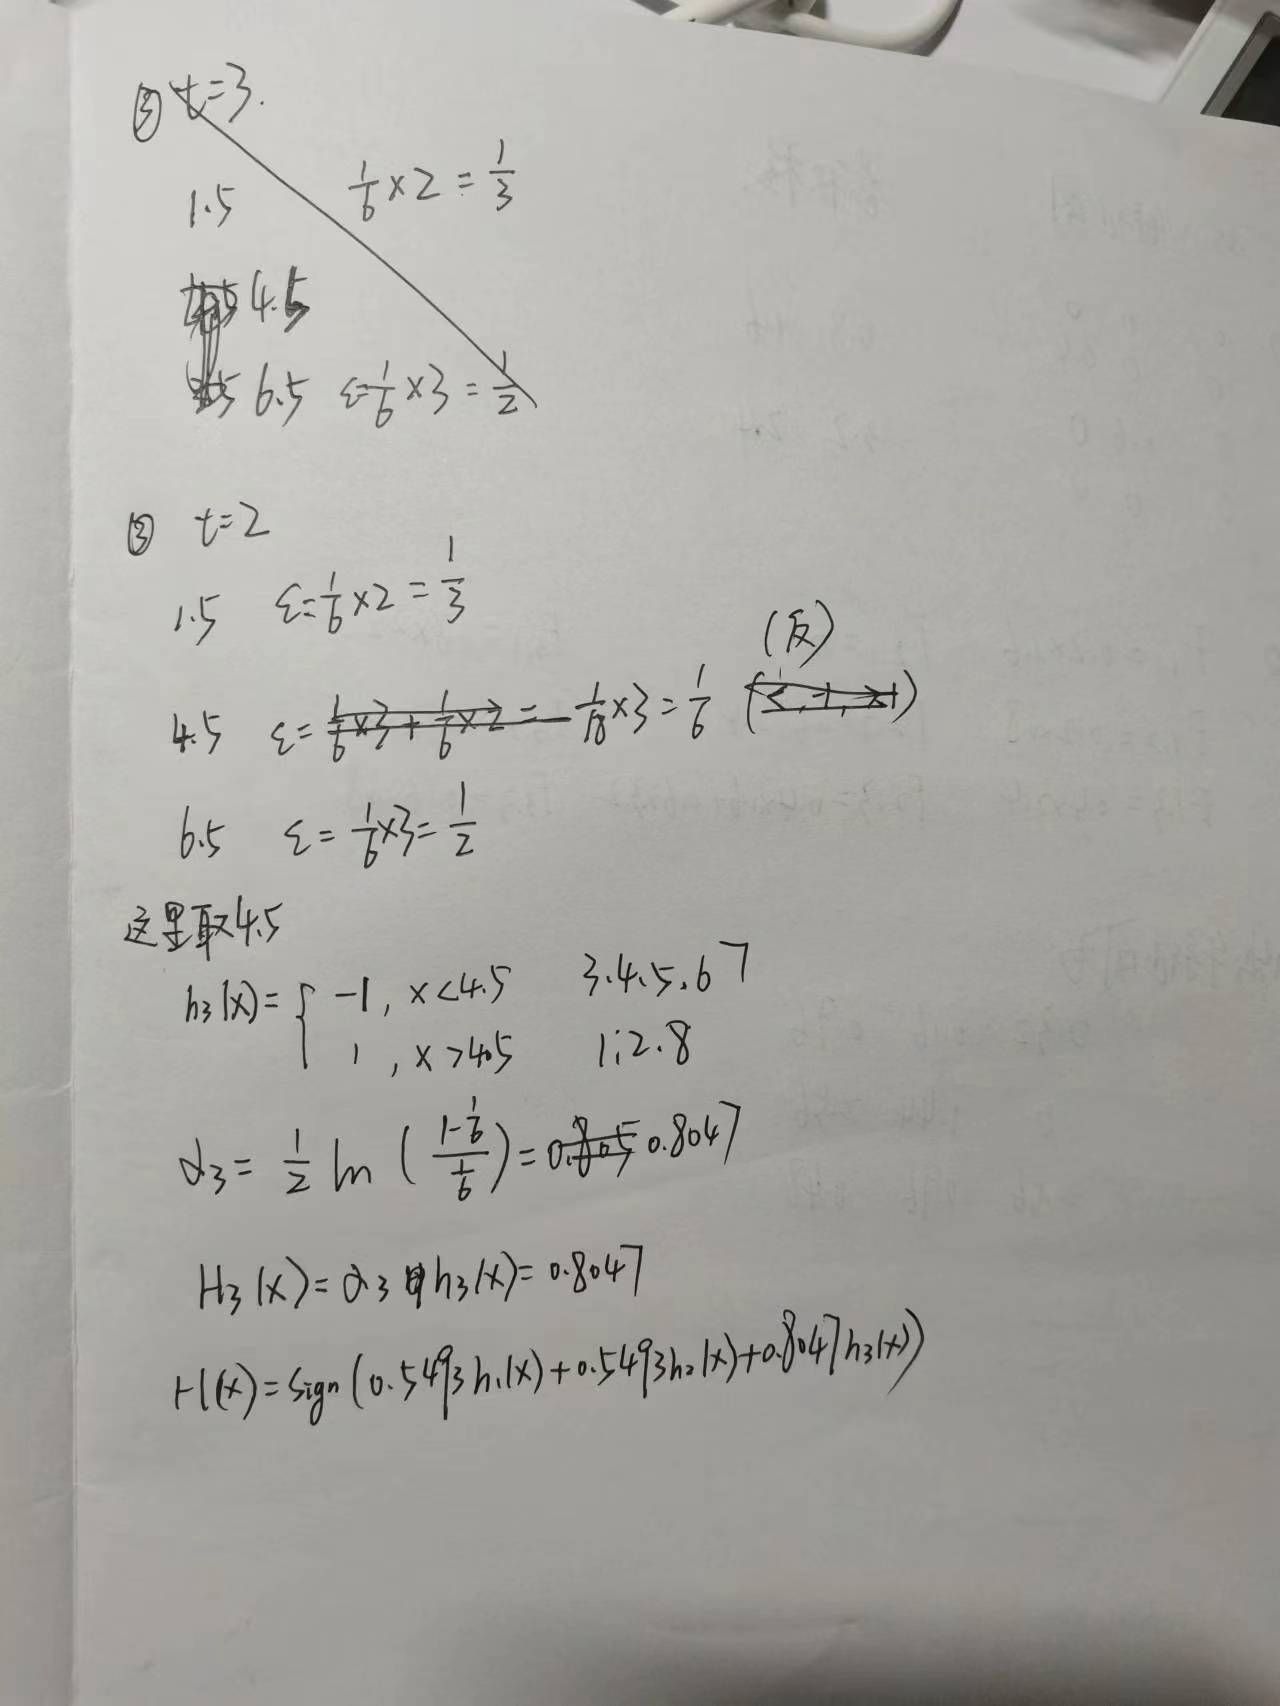 ③ t=3.
1.5 1/6×2=1/3
4.5
6.5 ε=1/6×3=1/2
③ t=2
1.5 ε=1/6×2=1/3
(反)
4.5 ε=1/6×3+1/6×2=1/18×3=1/6
6.5 ε=1/6×3=1/2
这里取4.5
h₃(x)={ -1, x<4.5 3.4.5.6 7
1, x>4.5 1;2.8
α₃=1/2 ln((1-1/6)/(1/6))=0.805 0.8047
H₃(x)=α₃ h₃(x)=0.8047
H(x)=sign(0.5493h₁(x)+0.5493h₂(x)+0.8047h₃(x))